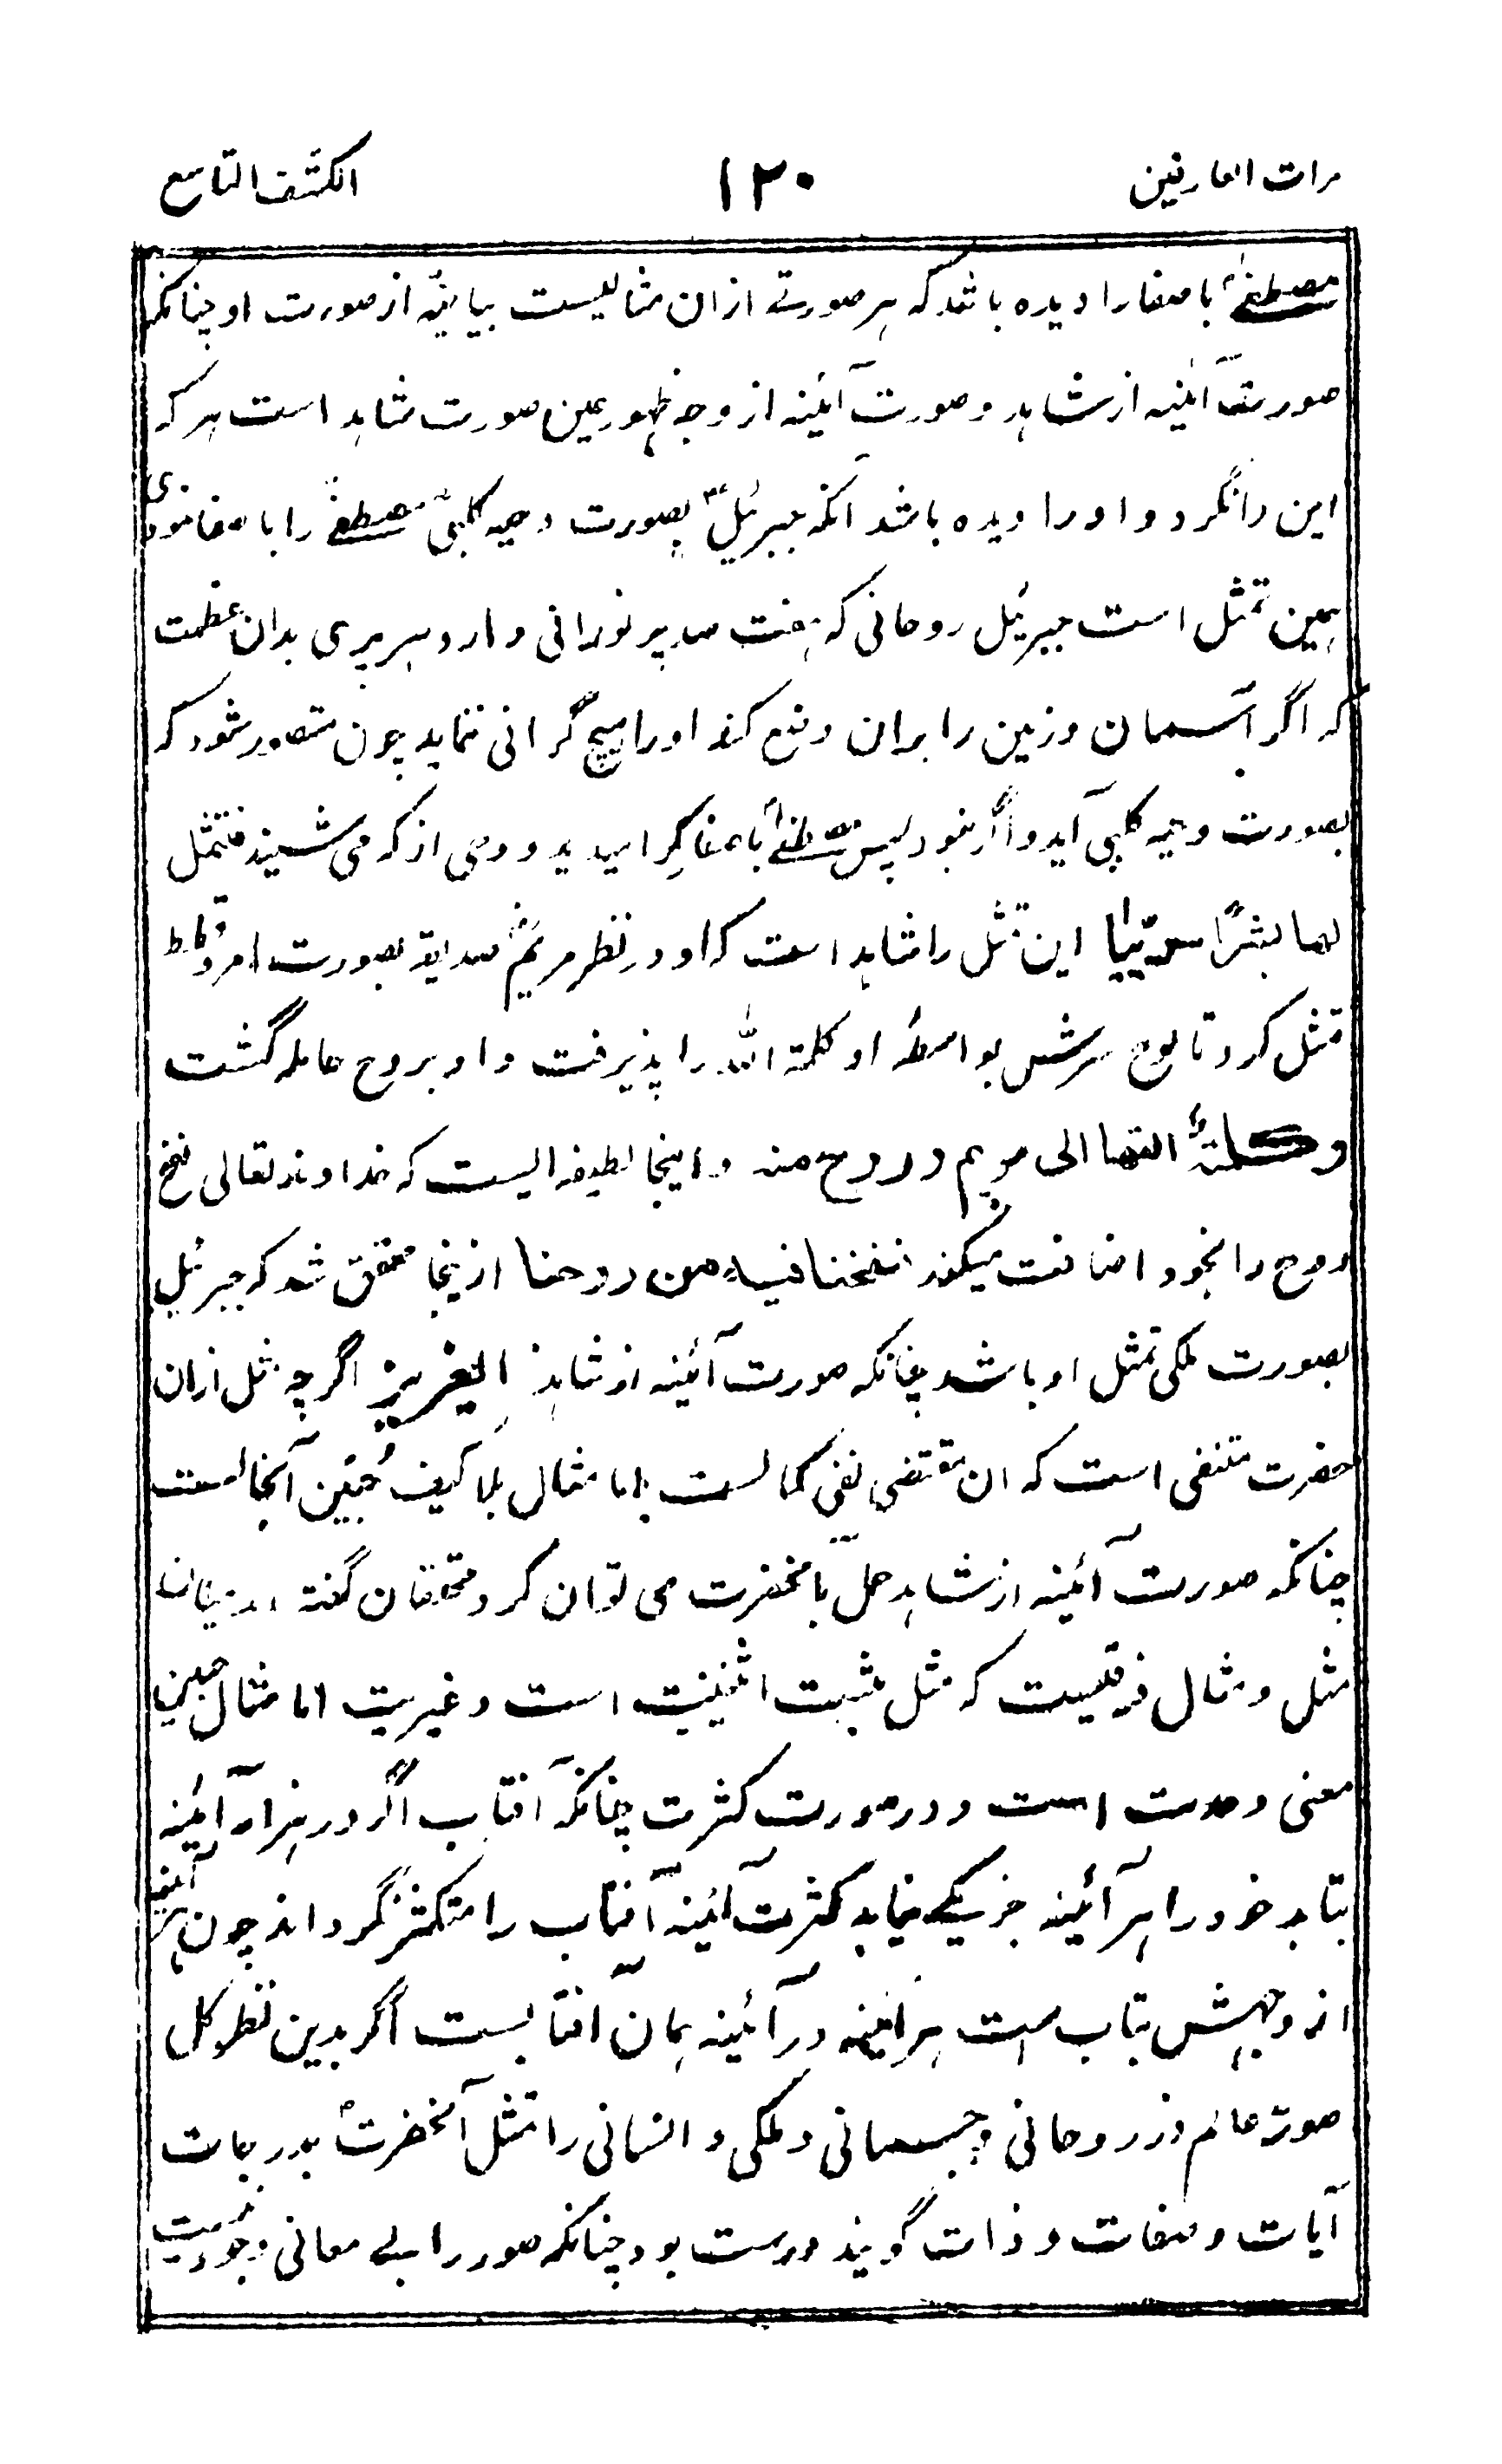 مرات العارفین ۱۲۰ الکشف التاسع
مصطفےٰ باصفا را دیده باشد که هر صورتے ازان مثالیست بیانیّه از صورت او چنانکه
صورت آئینه از شاهد و صورت آئینه از وجه ظهور عین صورت شاهد است هر که
این را نگرد و او را دیده باشد آنکه جبرئیلؑ بصورت دحیه کلبیؓ مصطفےٰ را باصفا نمودی
همین تمثل است جبرئیل روحانی که هفت صد پر نورانی دارد و هر پری بدان عظمت
که اگر آسمان و زمین را بران وضع کند او را هیچ گرانی ننماید چون متصور شود که
بصورت دحیه کلبی آید و اگر نبود پس مصطفےٰ باصفا کرا میدید و وحی از که می شنید فتمثل
لها بشرًا سویّا این تمثل را شاهد است که او در نظر مریمؑ صدیقه بصورت امرد قطط
تمثل کرد تا لوح سرش بواسطهٔ او کلمة الله را پذیرفت و او بروح حامله گشت
وکلمتهٗ القٰها الی مریم وروح منه و اینجا لطیفه الیست که خداوند تعالی نفخ
روح را بخود اضافت میکند فنفخنا فیه من روحنا ازینجا محقق شد که جبرئیل
بصورت ملکی تمثل او باشد چنانکه صورت آئینه از شاهد اے عزیز اگرچه مثل ازان
حضرت منتفی است که ان مقتضی نفی کمالست اما مثال بلا کیف مُبیّن آنجا است
چنانکه صورت آئینه از شاهد حمل بآنحضرت می توان کرد محققان گفته اند میان
مثل و مثال فرقیست که مثل مثبت اثنینیت است و غیریت اما مثال مبین
معنی وحدت است و در صورت کثرت چنانکه آفتاب اگر در هزار آئینه
بتابد خود را هر آئینه جز یکے نماید کثرت آئینه آفتاب را متکثر نگرداند چون هر آئینه
از وجهش بتاب است هر آئینه در آئینه همان آفتابست اگر بدین نظر کل
صورت عالم از روحانی و جسمانی و ملکی و انسانی را تمثل آنحضرتؐ بدرجات
آیات و صفات و ذات گویند درست بود چنانکه صور را بے معانی وجود نیست